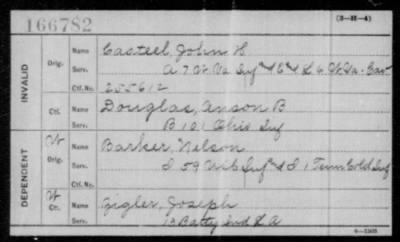 166782
(3-35-4)
INVALID
Orig.
Name Casteel, John H
Serv. A 7 W Va Inf
Ctf. No. 255612
Ctf.
Name Douglas, Anson B
Serv. B 101 Ohio Inf
DEPENDENT
W Orig.
Name Barker, Nelson
Serv. I 59 Inf & I 1 Tenn Cold Inf
Ctf. No.
W Ctf.
Name Zigler, Joseph
Serv. 13 Batty Ind L A